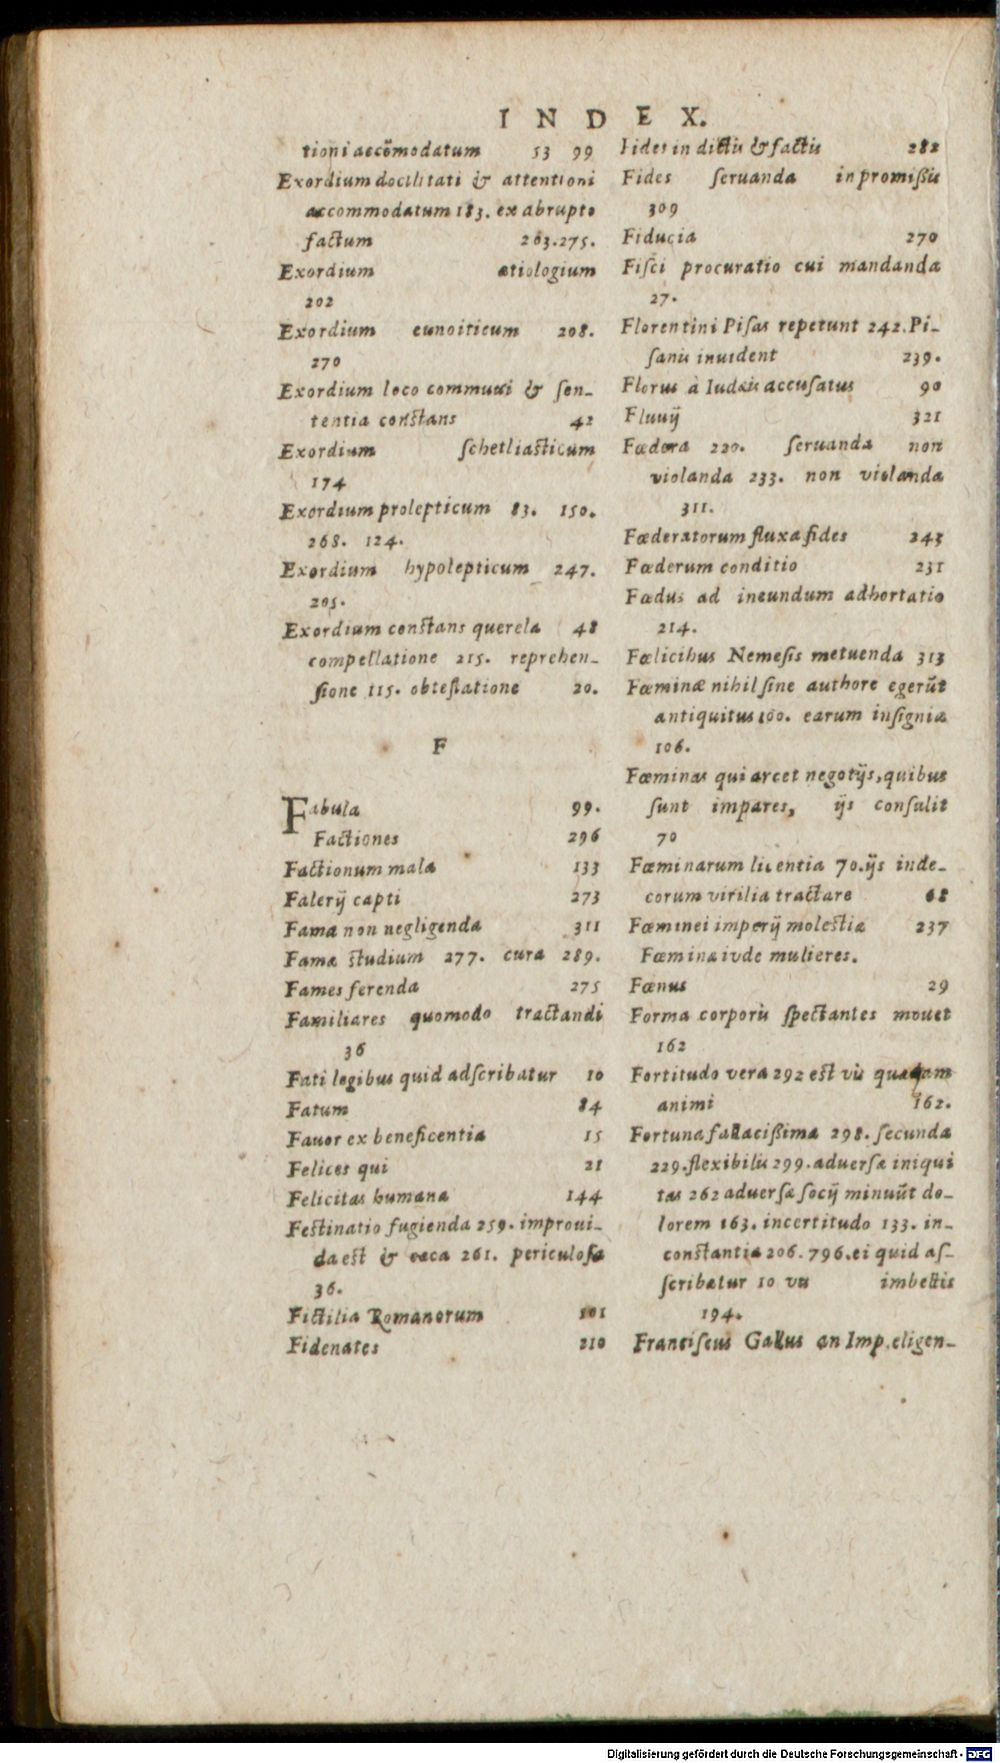 INDEX.
tioni accõmodatum 53 99
Exordium docilitati & attentioni
accommodatum 183. ex abrupto
factum 263.275.
Exordium ætiologium
202
Exordium eunoiticum 208.
270
Exordium loco communi & ſen-
tentia conſtans 42
Exordium ſchetliaſticum
174
Exordium prolepticum 83. 150.
268. 124.
Exordium hypolepticum 247.
205.
Exordium conſtans querela 48
compellatione 215. reprehen-
ſione 115. obteſtatione 20.
F
Fabula 99.
Factiones 296
Factionum mala 133
Falerij capti 273
Fama non negligenda 311
Famæ ſtudium 277. cura 289.
Fames ferenda 275
Familiares quomodo tractandi
36
Fati legibus quid adſcribatur 10
Fatum 84
Fauor ex beneficentia 15
Felices qui 21
Felicitas humana 144
Feſtinatio fugienda 259. improui-
da eſt & cæca 261. periculoſa
36.
Fictilia Romanorum 101
Fidenates 210
Fides in dictis & factis 282
Fides ſeruanda in promißis
309
Fiducia 270
Fiſci procuratio cui mandanda
27.
Florentini Piſas repetunt 242. Pi-
ſanis inuident 239.
Florus à Iudæis accuſatus 90
Fluuij 321
Fœdera 220. ſeruanda non
violanda 233. non violanda
311.
Fœderatorum fluxa fides 243
Fœderum conditio 231
Fœdus ad ineundum adhortatio
214.
Fœlicibus Nemeſis metuenda 313
Fœminæ nihil ſine authore egerũt
antiquitus 160. earum inſignia
106.
Fœminas qui arcet negotijs, quibus
ſunt impares, ijs conſulit
70
Fœminarum licentia 70. ijs inde-
corum virilia tractare 68
Fœminei imperij moleſtia 237
Fœmina vide mulieres.
Fœnus 29
Forma corporis ſpectantes mouet
162
Fortitudo vera 292 eſt vis quædam
animi 162.
Fortuna fallacißima 298. ſecunda
229. flexibilis 299. aduerſæ iniqui
tas 262 aduerſæ ſocij minuũt do-
lorem 163. incertitudo 133. in-
conſtantia 206. 796. ei quid aſ-
ſcribatur 10 vis imbellis
194.
Franciſcus Gallus an Imp. eligen-
Digitalisierung gefördert durch die Deutsche Forschungsgemeinschaft - DFG